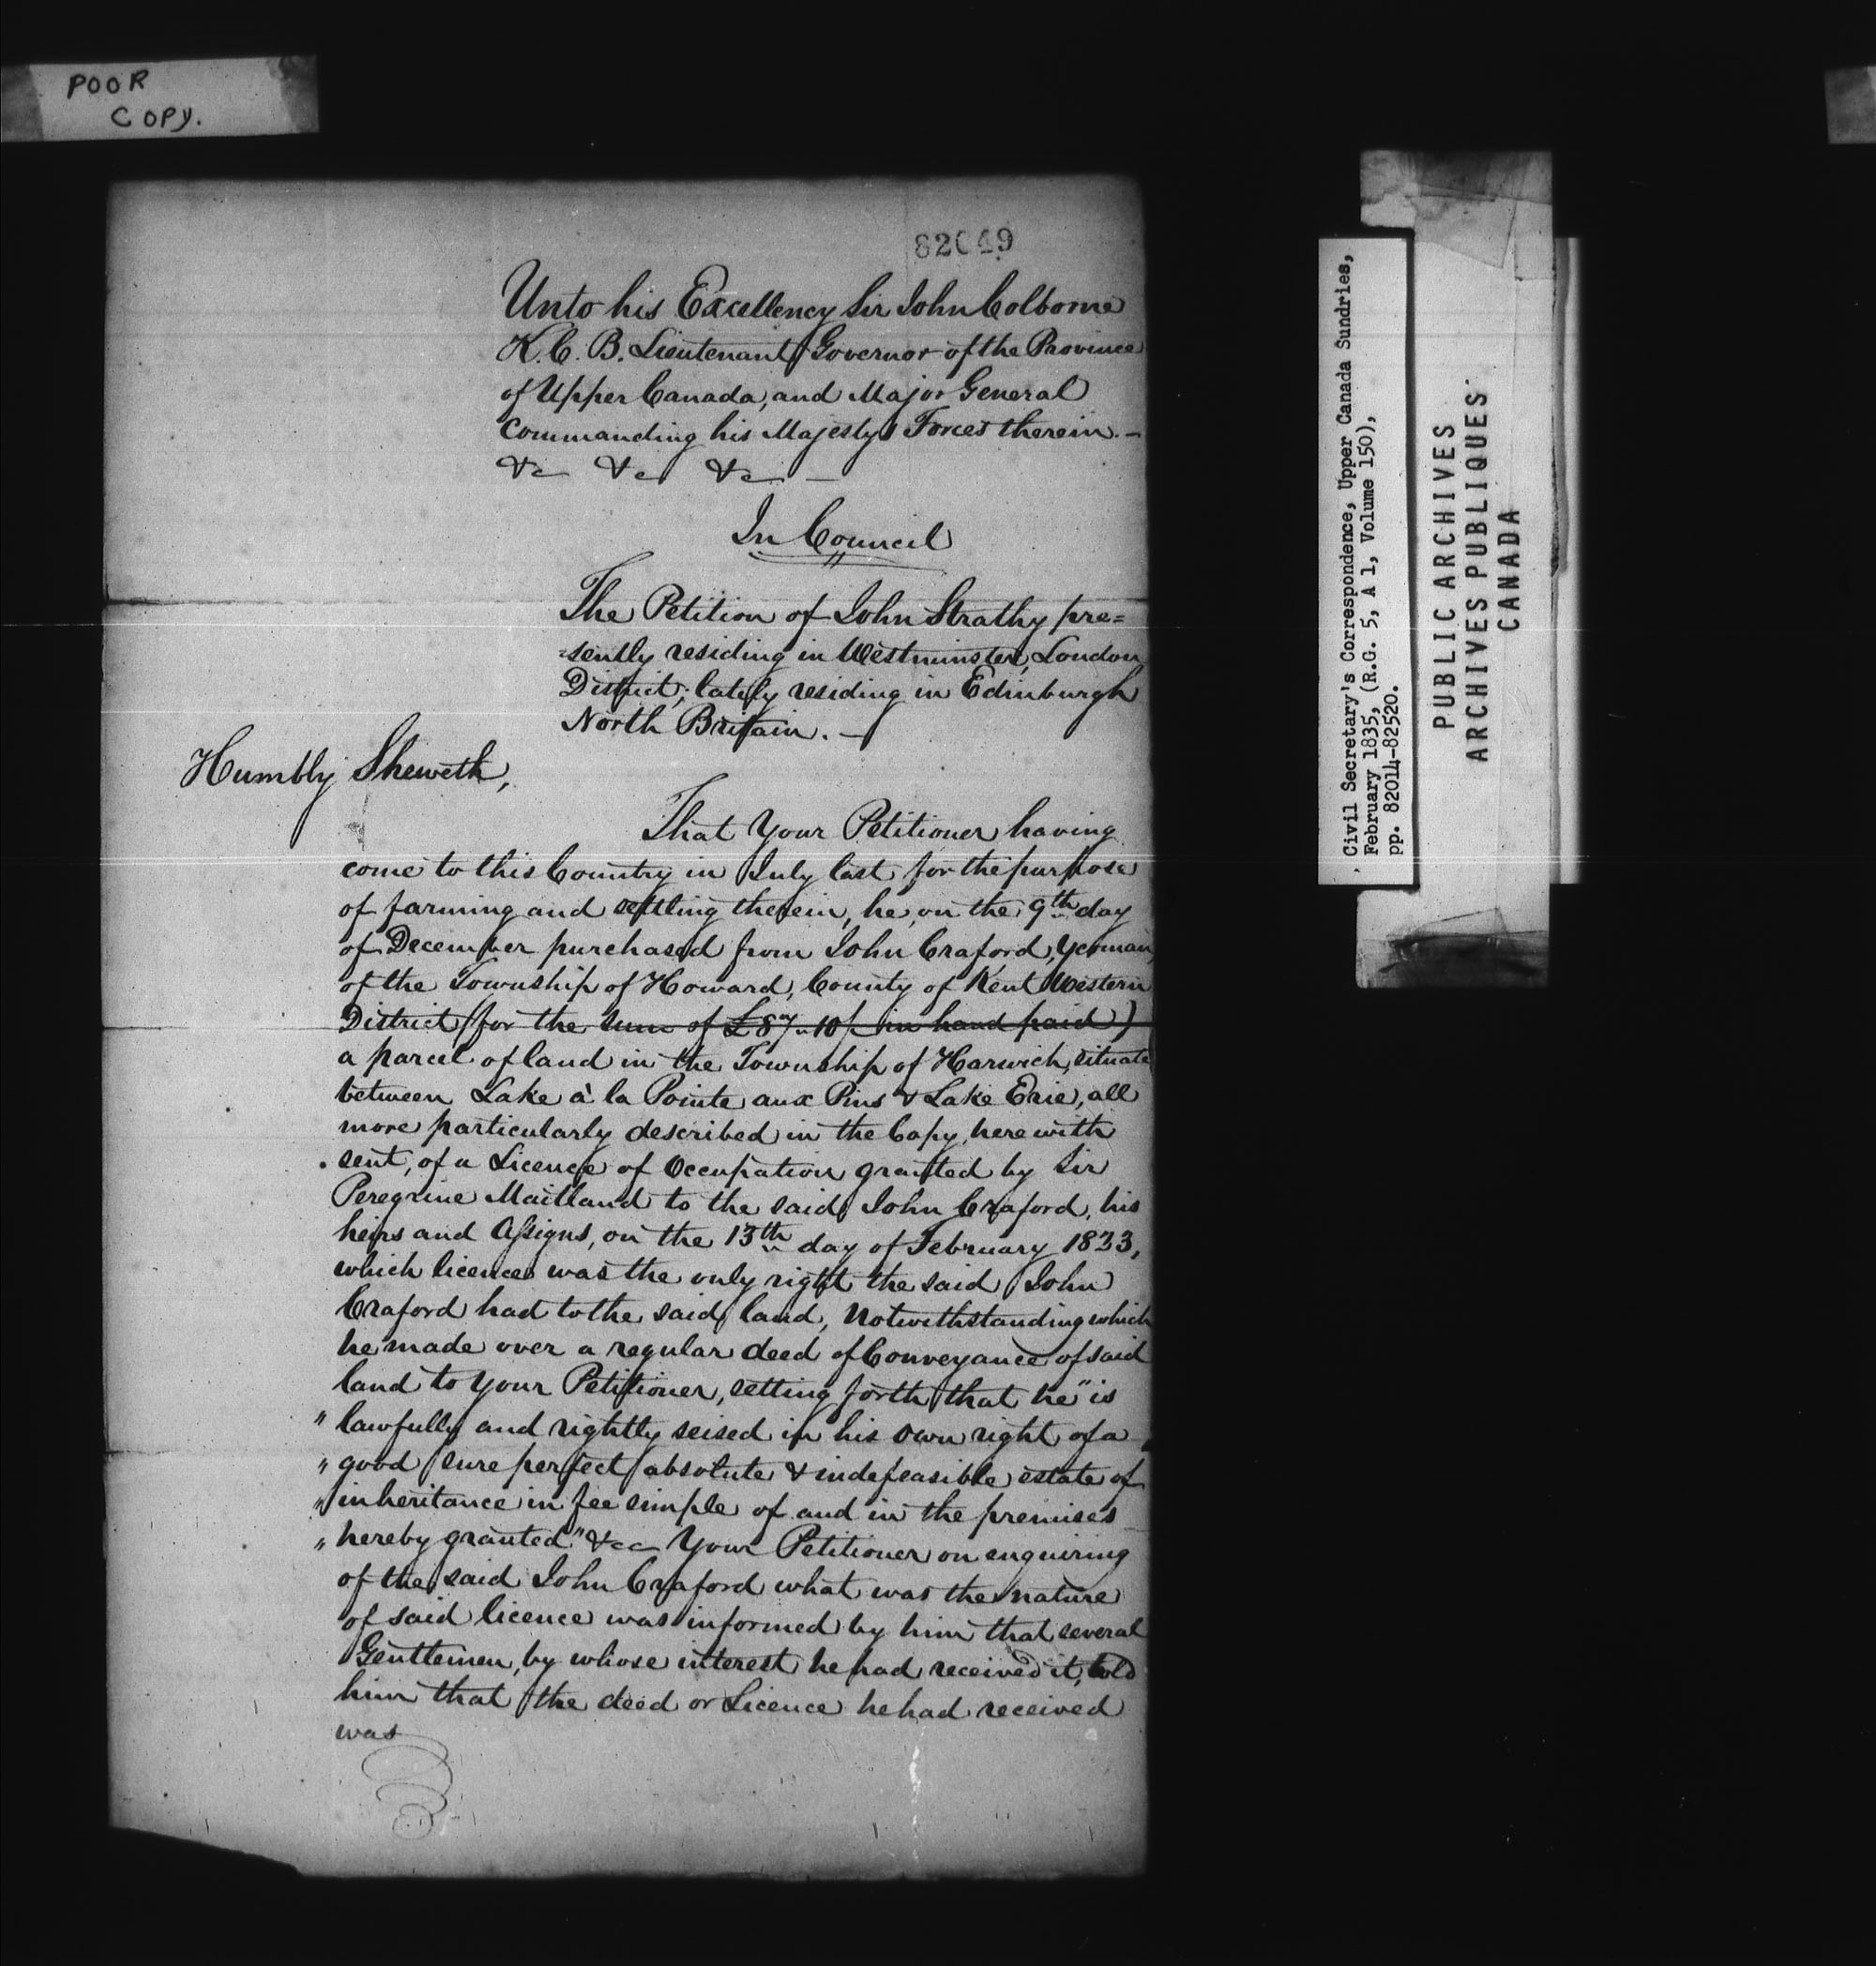 POOR
COPY.
82049
Unto his Excellency Sir John Colborne
K. C. B. Lieutenant Governor of the Province
of Upper Canada, and Major General
Commanding his Majestys Forces therein. —
&c &c &c —
In Council
The Petition of John Strathy pre=
=sently residing in Westminster, London
District, lately residing in Edinburgh
North Britain. —
Humbly Sheweth,
That Your Petitioner having
come to this Country in July last for the purpose
of farming and settling therein, he, on the 9th day
of December purchased from John Craford, Yeoman,
of the Township of Howard, County of Kent Western
District (for the sum of £87 " 10/- in hand paid)
a parcel of land in the Township of Harwich, situate
between Lake à la Pointe aux Pins & Lake Erie, all
more particularly described in the Copy, herewith
sent, of a Licence of Occupation granted by Sir
Peregrine Maitland to the said John Craford, his
heirs and Assigns, on the 13th day of February 1823,
which licence was the only right the said John
Craford had to the said land, Notwithstanding which
he made over a regular deed of Conveyance of said
land to Your Petitioner, setting forth that he "is
" lawfully and rightly seised in his own right of a
" good sure perfect absolute & indefeasible estate of
" inheritance in fee simple of and in the premises
" hereby granted" &cc Your Petitioner on enquiring
of the said John Craford what was the nature
of said licence was informed by him that several
Gentlemen, by whose interest he had received it, told
him that the deed or Licence he had received
was
Civil Secretary's Correspondence, Upper Canada Sundries,
February 1835, (R.G. 5, A 1, Volume 150),
pp. 82014-82520.
PUBLIC ARCHIVES
ARCHIVES PUBLIQUES
CANADA